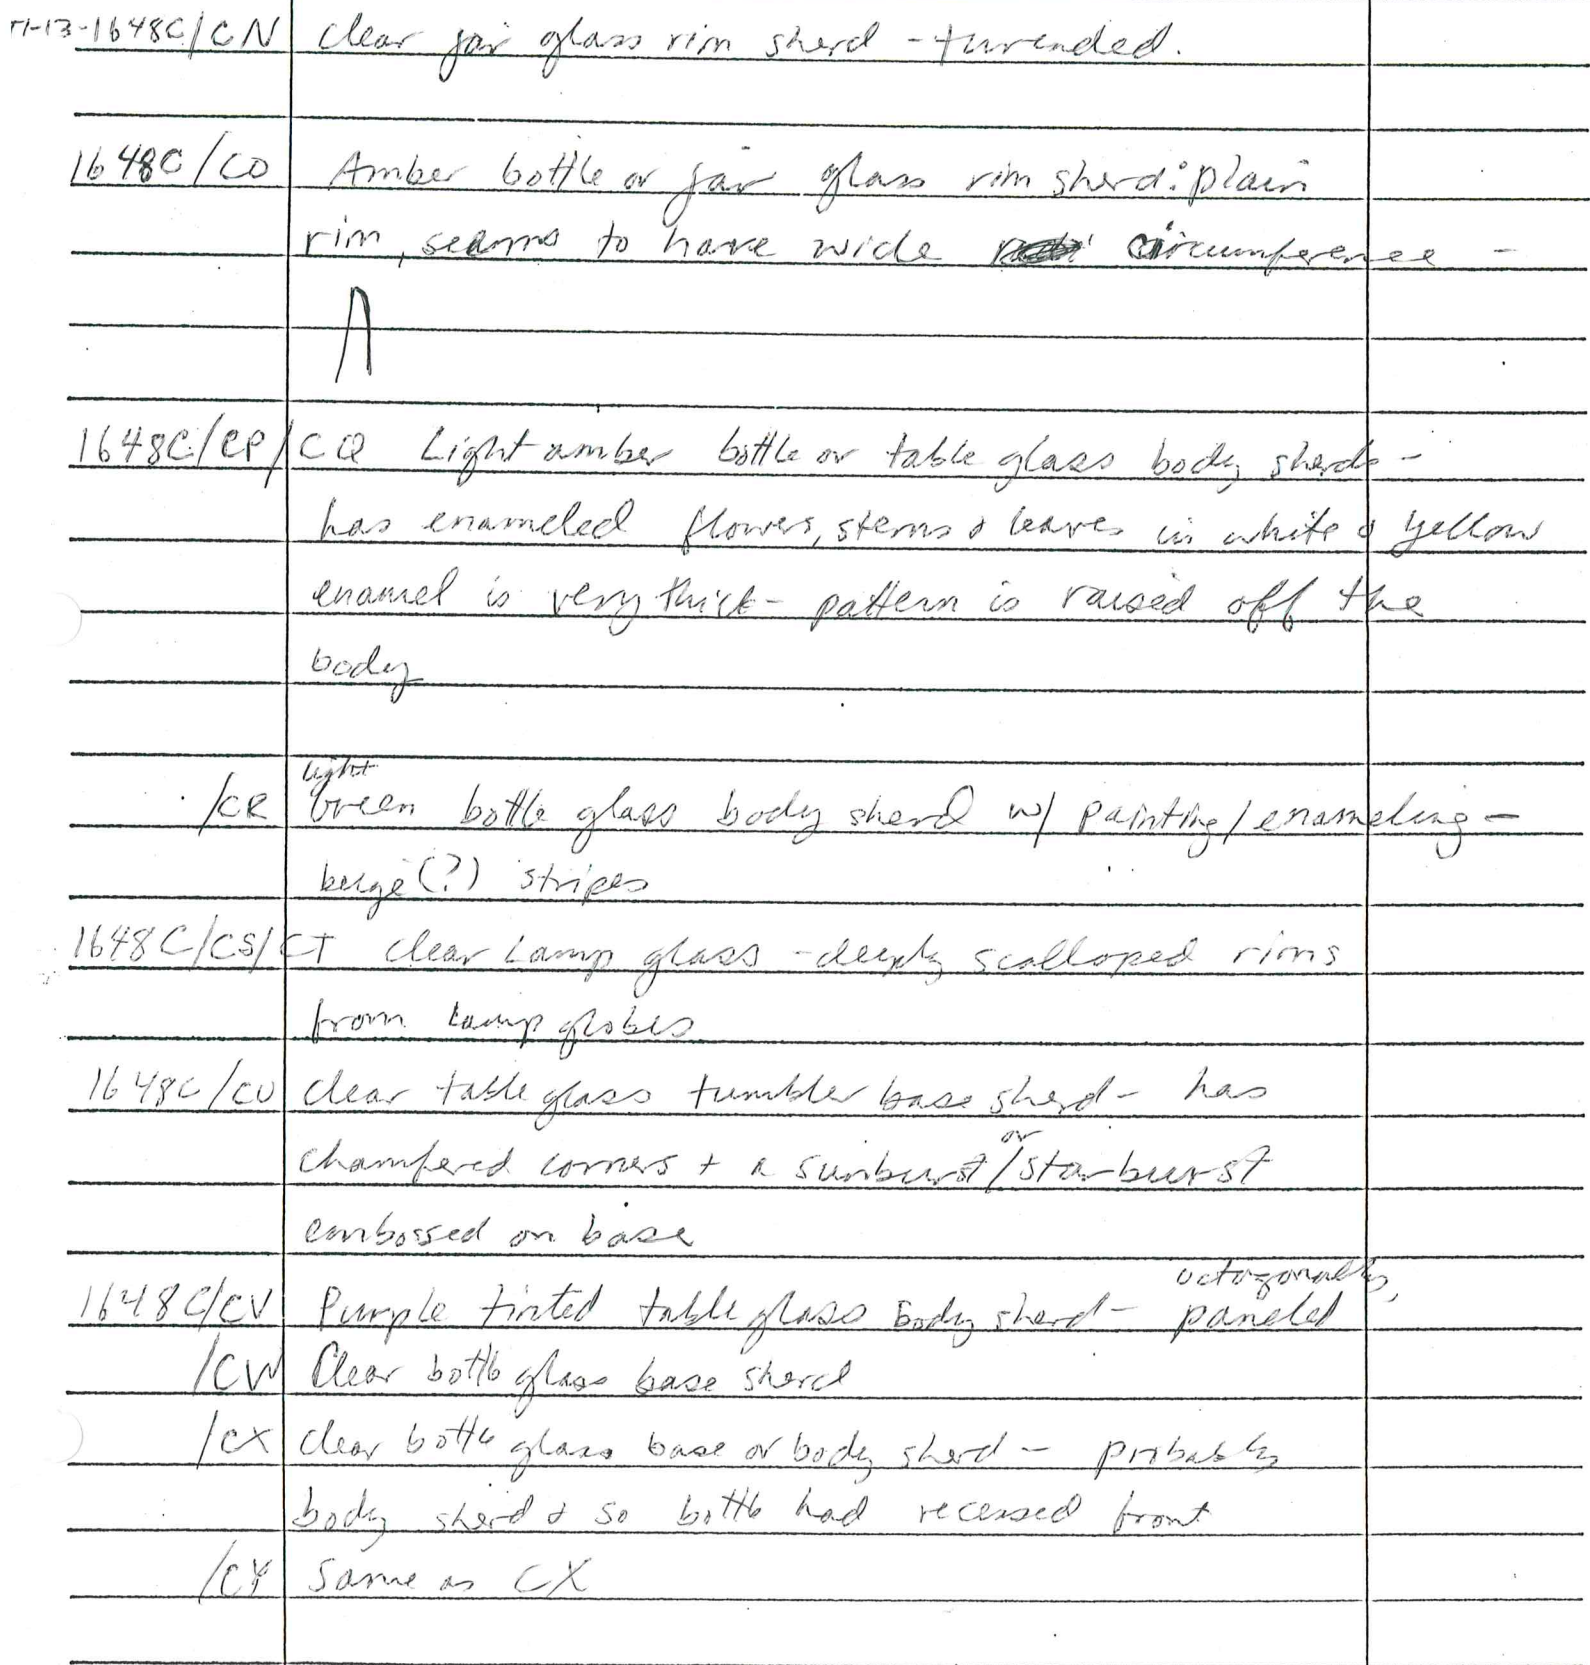 71-13-1648C/CN clear jar glass rim sherd -
1648C/CO Amber bottle or jar glass rim sherd: plain
rim, seams to have wide circumference -
1648C/CP/CQ Light amber bottle or table glass body sherds -
has enameled flowers, stems & leaves in white & yellow
enamel is very thick - pattern is raised off the
body
light
/CR Green bottle glass body sherd w/ painting/enameling -
beige(?) stripes
1648C/CS/CT clear Lamp glass - deeply scalloped rims
from Lamp globes
1648C/CU clear table glass tumbler base sherd - has
or
chamfered corners + a sunburst/starburst
embossed on base
octagonally,
1648C/CV Purple tinted table glass Body sherd - paneled
/CW Clear bottle glass base sherd
/CX clear bottle glass base or body sherd - probably
body sherd & so bottle had recessed front
/CY Same as CX